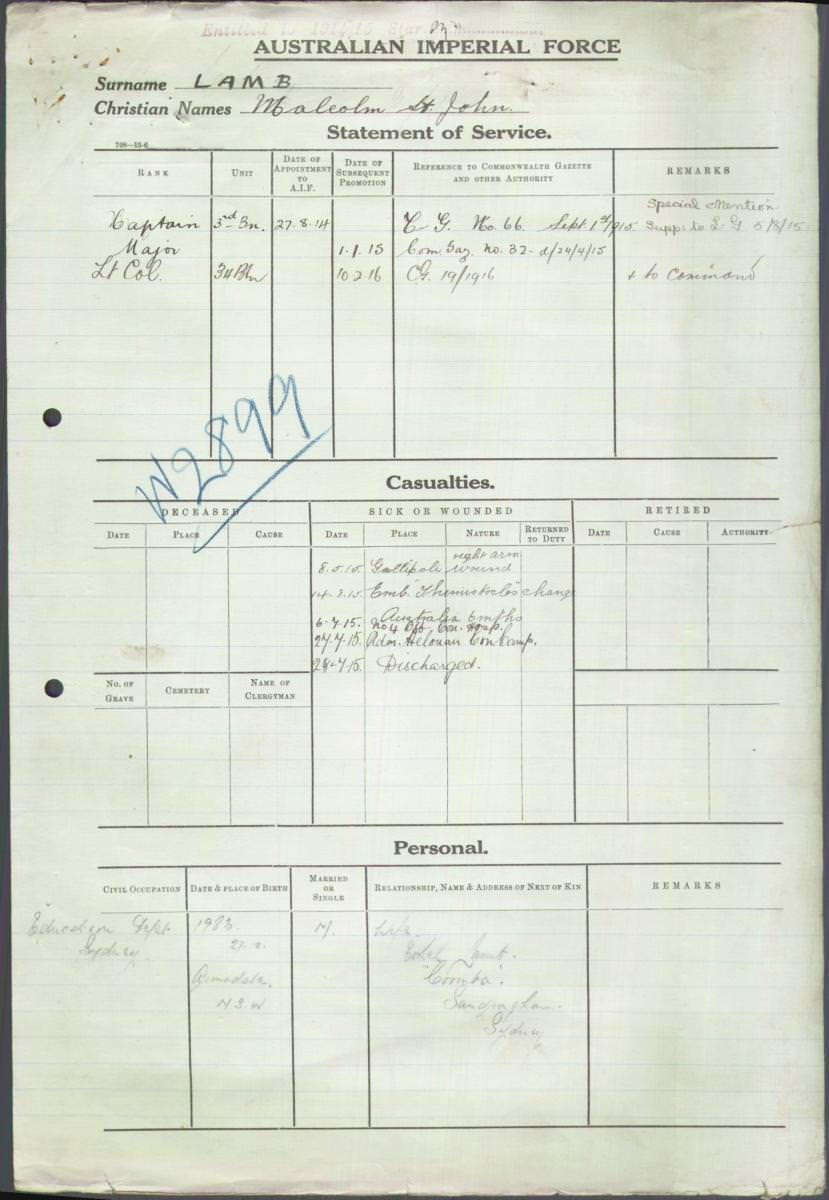 Entitled to 1914/15 Star
AUSTRALIAN IMPERIAL FORCE
Surname LAMB
Christian Names Malcolm St. John.
Statement of Service.
708—15-6
RANK UNIT DATE OF APPOINTMENT TO A.I.F. DATE OF SUBSEQUENT PROMOTION REFERENCE TO COMMONWEALTH GAZETTE AND OTHER AUTHORITY REMARKS
Special Mention
Captain 3rd Bn. 27.8.14 C G. No. 66. Sept 1st/1915. Supp: to L G 5/8/15.
Major 1.1.15 Com. Gaz. No. 32 - d/24/4/15
Lt Col. 34 Btn 10 2 16 CG. 19/1916 + to Command
W2899
Casualties.
DECEASED SICK OR WOUNDED RETIRED
DATE PLACE CAUSE DATE PLACE NATURE RETURNED TO DUTY DATE CAUSE AUTHORITY
right arm
8.5.15. Gallipoli wound
Emb "Themistocles" change
Australia 6 mths
6-7.15. No 4
27.7.15. Adm. Helouan Con Camp.
28-7.15. Discharged.
NO. OF GRAVE CEMETERY NAME OF CLERGYMAN
Personal.
CIVIL OCCUPATION DATE & PLACE OF BIRTH MARRIED OR SINGLE RELATIONSHIP, NAME & ADDRESS OF NEXT OF KIN REMARKS
Education Dept 1983. M. Wife.
Sydney. Lamb.
Armadale. "Coomba".
N.S.W Sandringham.
Sydney